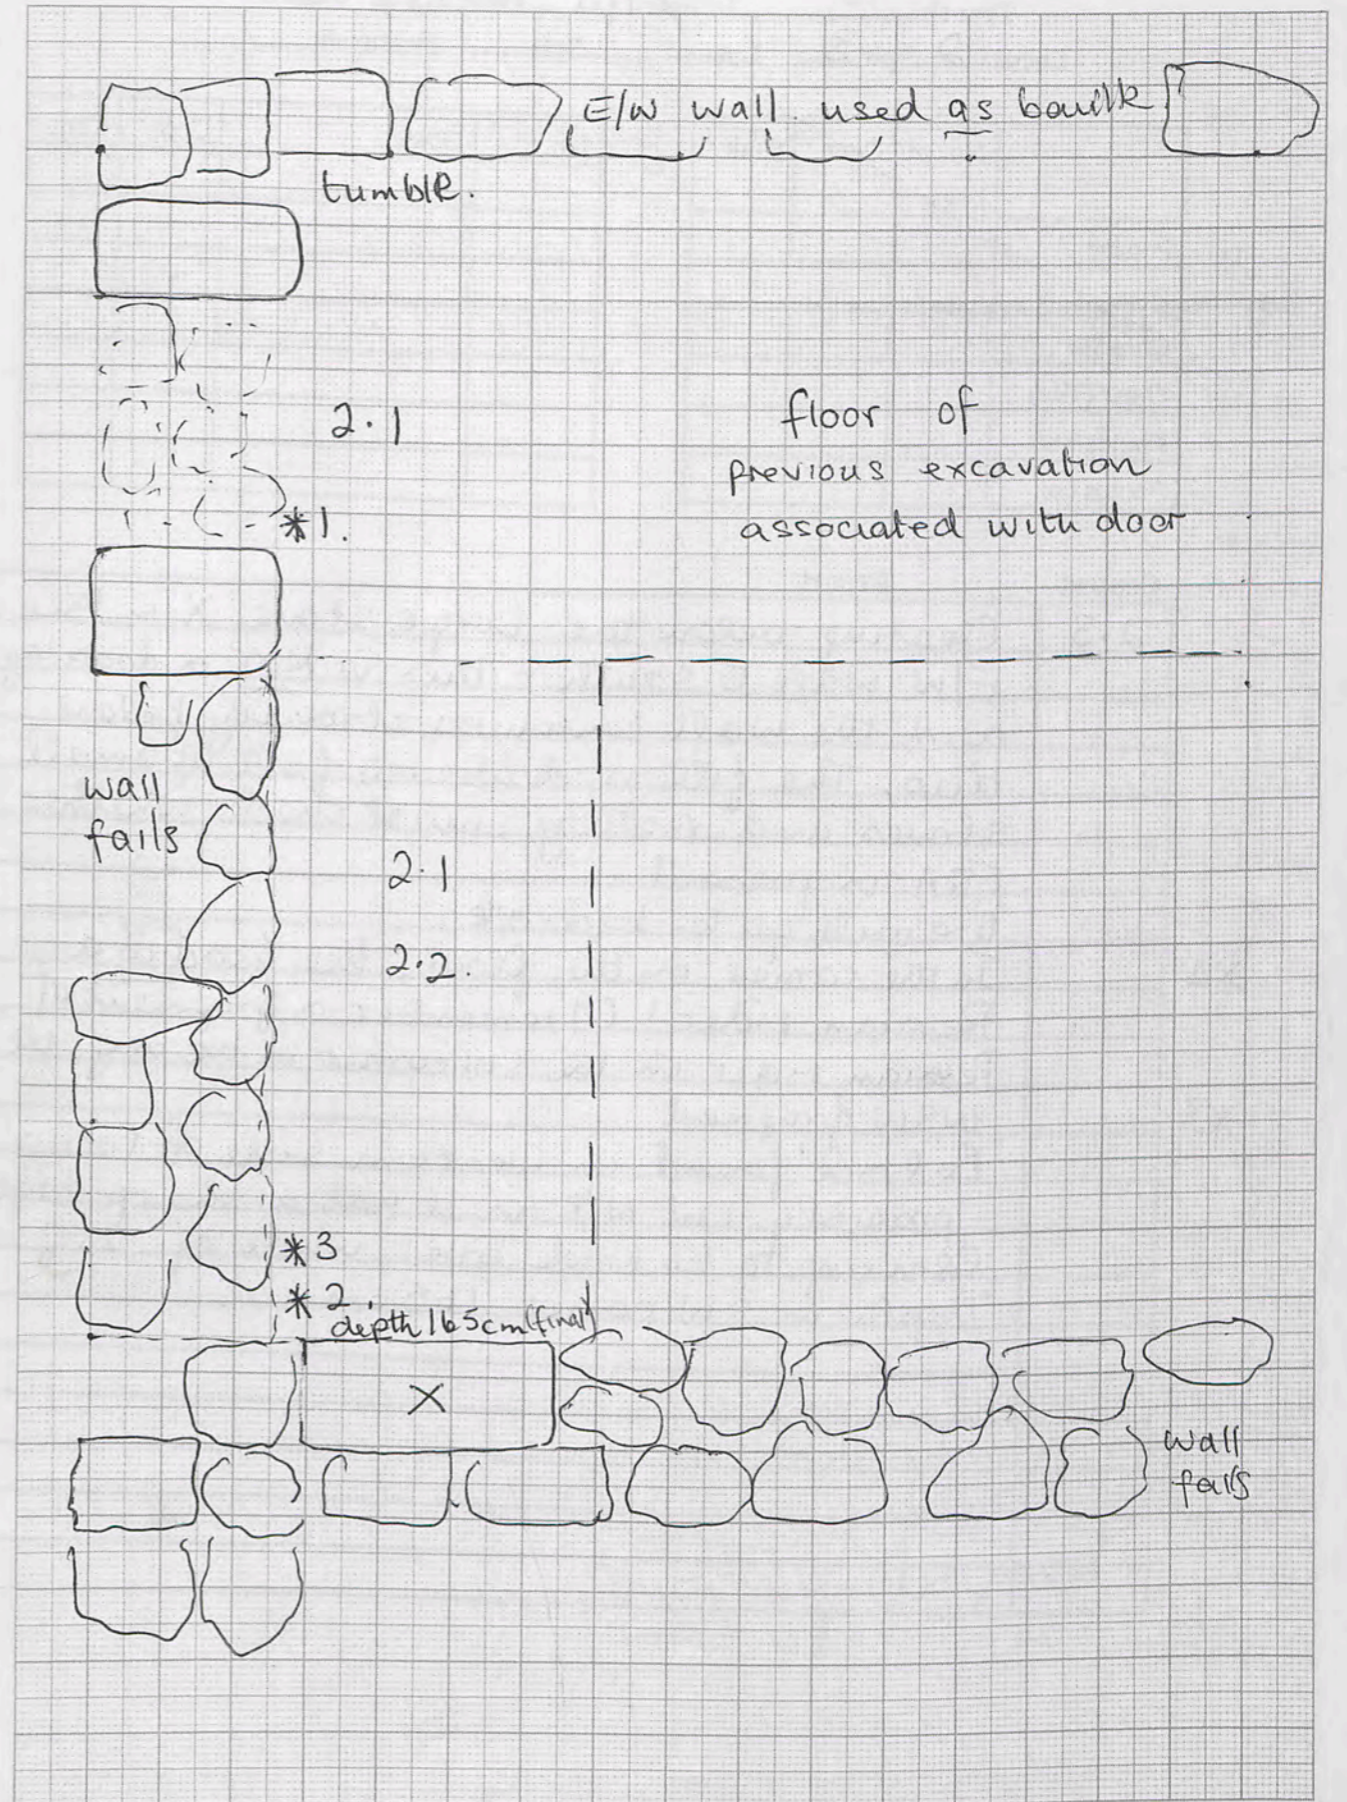 E/W wall used as baulk
tumble.
2.1
floor of
previous excavation
associated with door
*1.
wall
fails
2.1
2.2.
*3
*2.
depth 165cm (final)
X
wall
fails